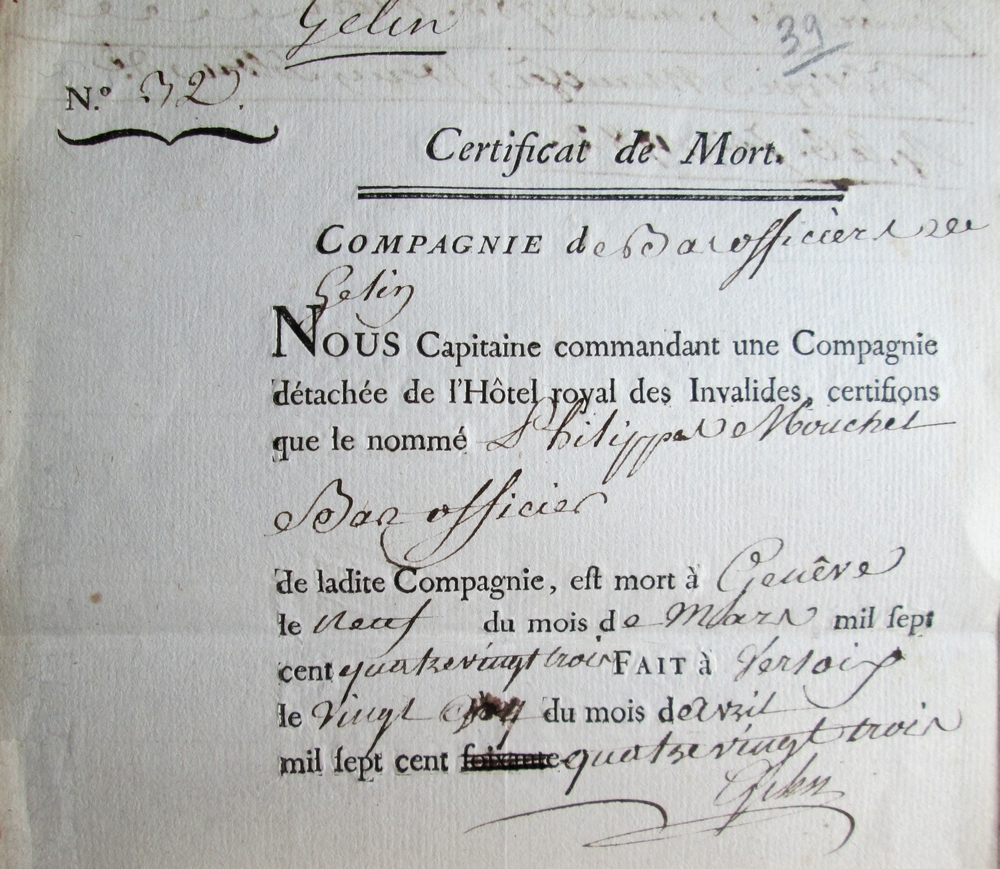 Gelin
39
N.º 32.
Certificat de Mort.
COMPAGNIE de Bas officiers de
Gelin
NOUS Capitaine commandant une Compagnie
détachée de l'Hôtel royal des Invalides, certifions
que le nommé Philippe Mouchet
Bas officier
de ladite Compagnie, est mort à Genêve
le neuf du mois de Mars mil sept
cent quatrevingt trois FAIT à Versoix
le vingt du mois d'avril
mil sept cent soixante quatrevingt trois
Gelin